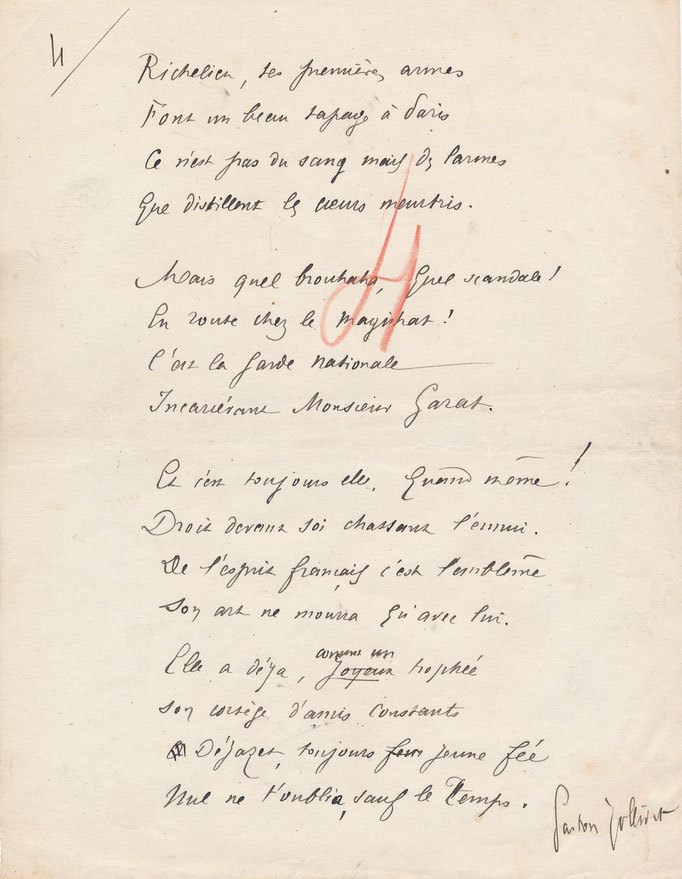 4/
Richelieu, ses premières armes
Font un beau tapage à Paris
Ce n'est pas du sang mais des larmes
Que distillent les cœurs meurtris.
4
Mais quel brouhaha, Quel scandale !
En route chez le magistrat !
C'est la Garde nationale
Incarcérant Monsieur Garat.
Et c'est toujours elle, Quand même !
Droit devant soi chassant l'ennui.
De l'esprit français c'est l'emblème
Son art ne mourra qu'avec lui.
Elle a déjà, comme un joyeux trophée
Son cortège d'amis constants
Déjazet, toujours jeune fée
Nul ne t'oublia, sauf le Temps.
Gaston Jollivet